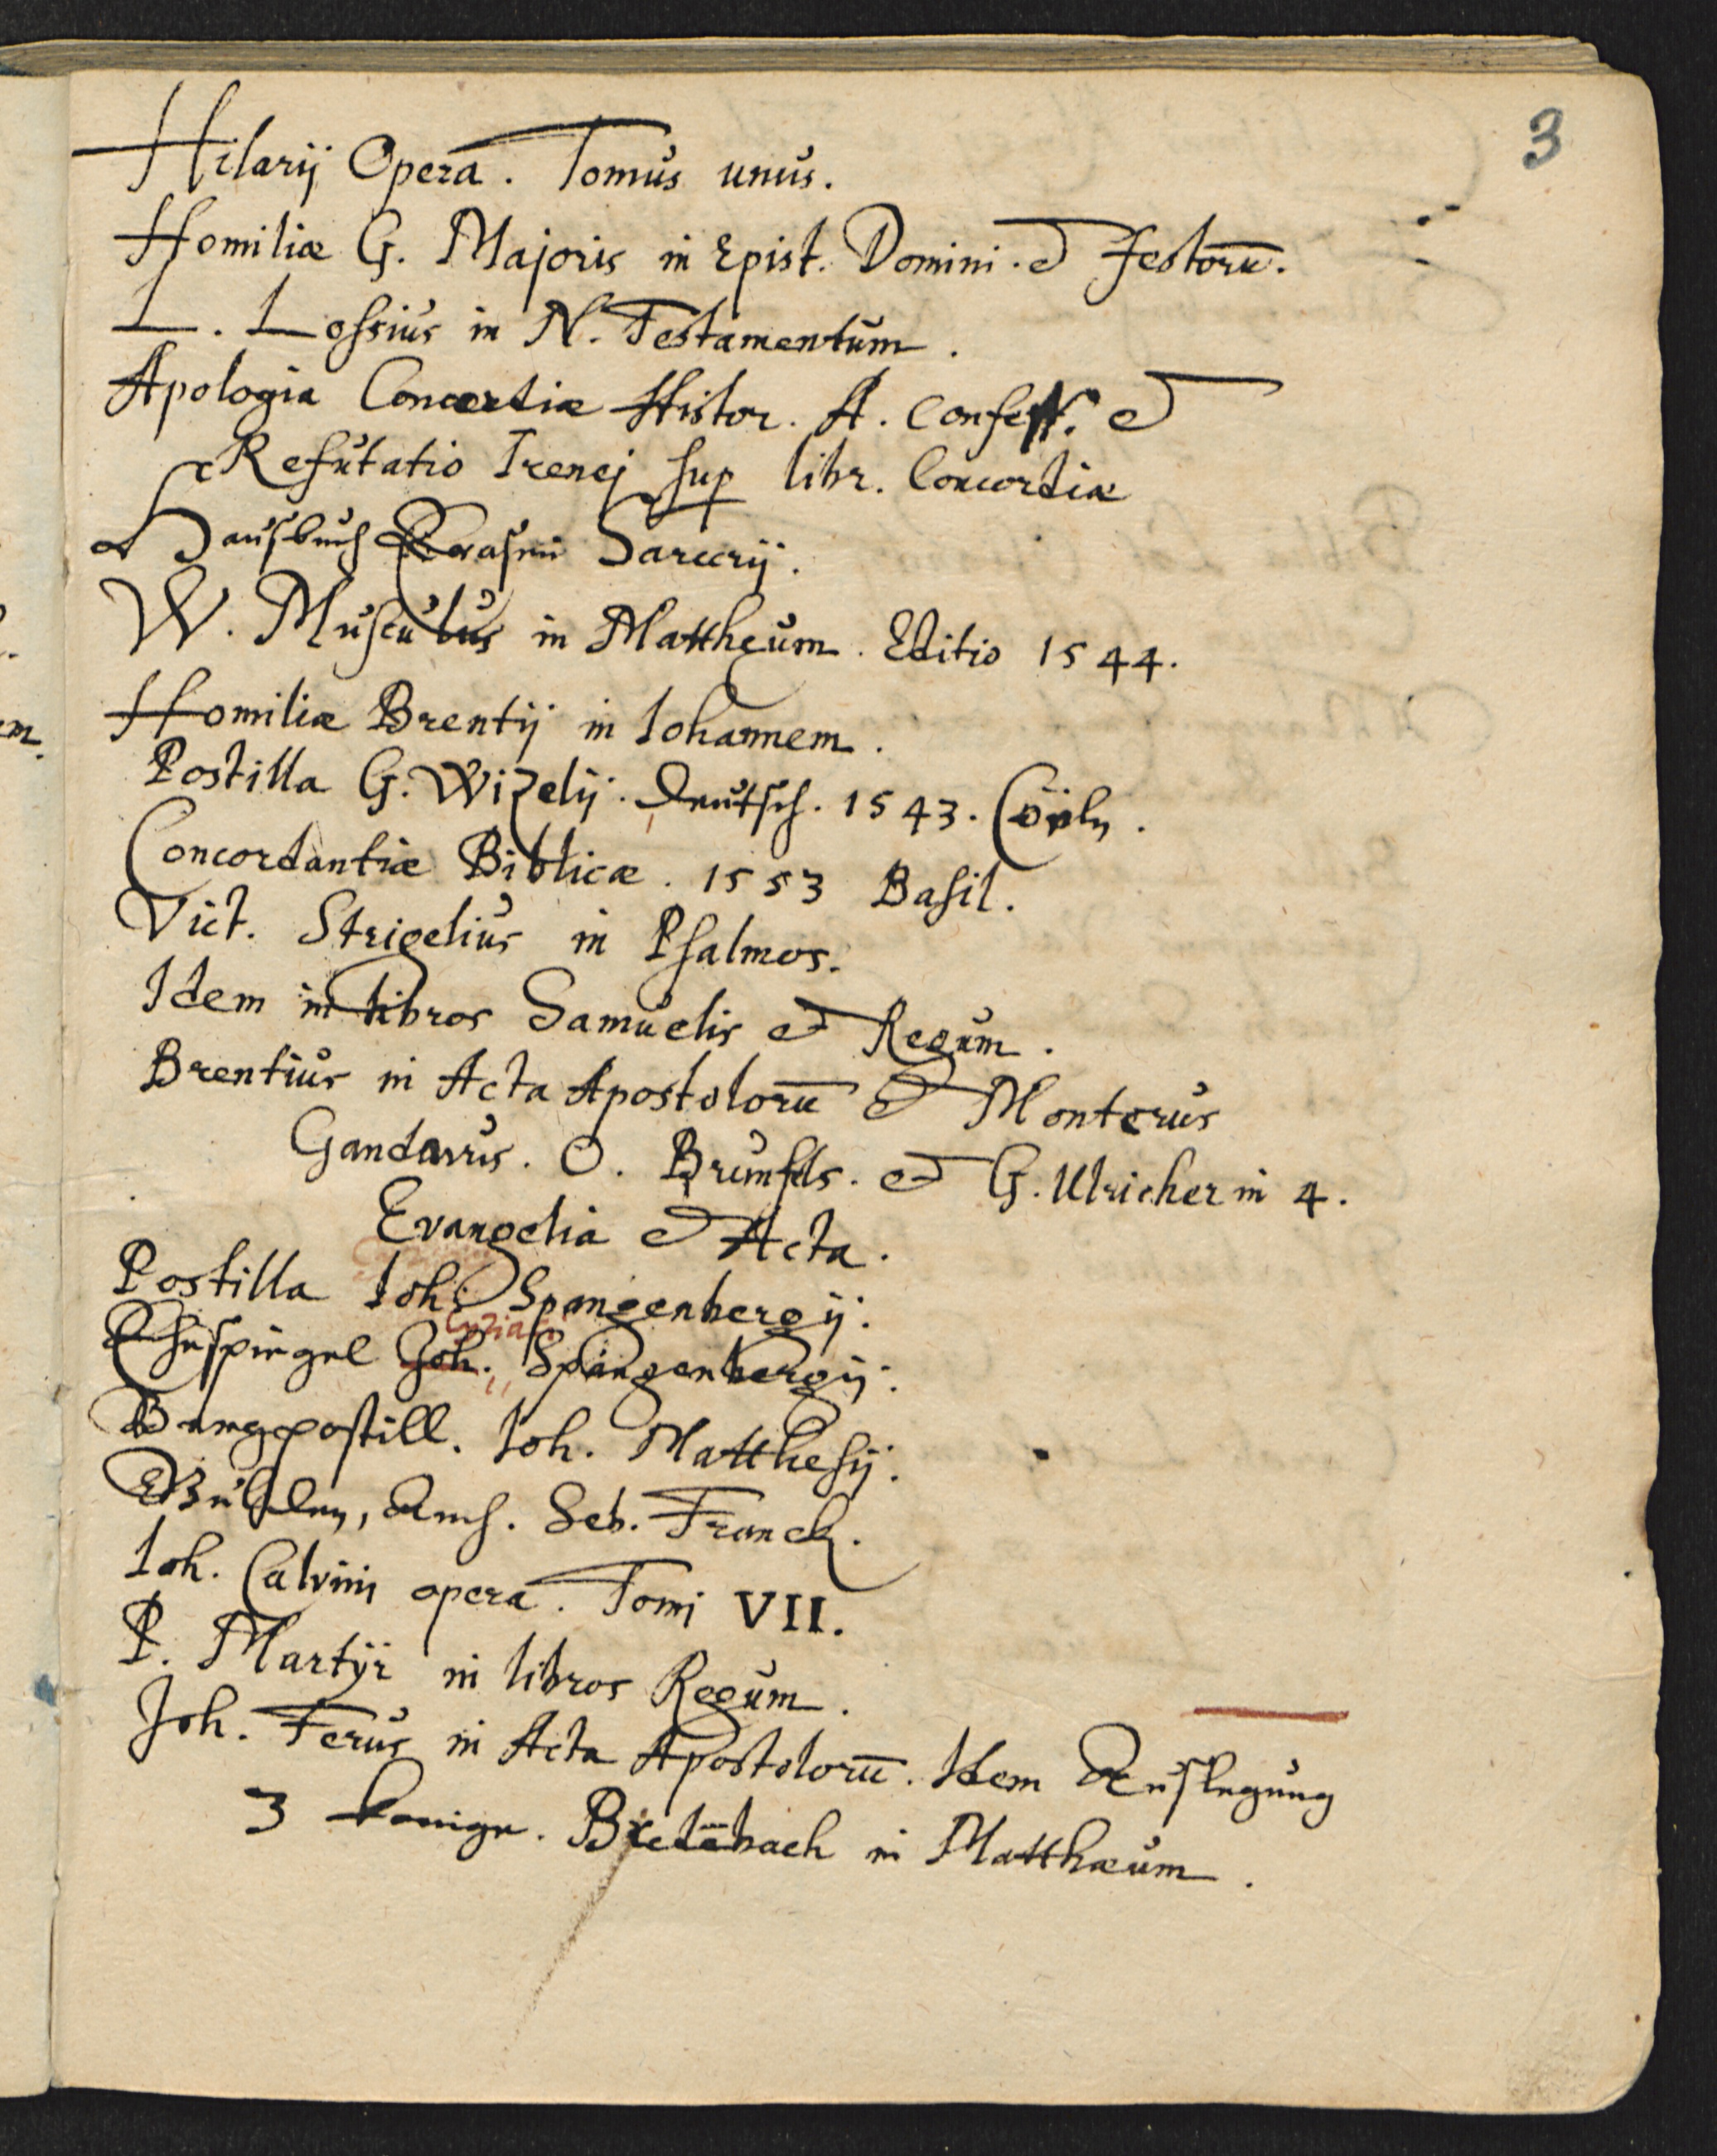 3
Hilarij Opera. Tomus unus.
Homiliæ G. Majoris in Epist. Domini. et Festorū.
L. Lossius in N. Testamentum.
Apologia Concordiæ Histor. A. Confess. et
Refutatio Irenej sup libr. Concordiæ
Hausbuch Erasmi Sarcerij.
W. Musculus in Mattheum. Editio 1544.
Homiliæ Brentij in Iohannem.
Postilla G. Wizelij. Deutsch. 1543. Cöln.
Concordantiæ Biblicæ. 1553 Basil.
Vict. Strigelius in Psalmos.
Idem in libros Samuelis et Regum.
Brentius in Acta Apostolorū et Monterus
Gandavus. O. Brunfels. et G. Ulricher in 4.
Evangelia et Acta.
Postilla Ioh. Spangenbergij.
Cyriaci
Ehespiegel Joh. Spangenbergij.
Bergpostill. Ioh. Matthesij.
Seb. Franck.
Ioh. Calvini opera. Tomi VII.
P. Martÿr in libros Regum.
Joh. Ferus in Acta Apostolorū. Idem Auslegung
3 konige. Bredēbach in Matthæum.